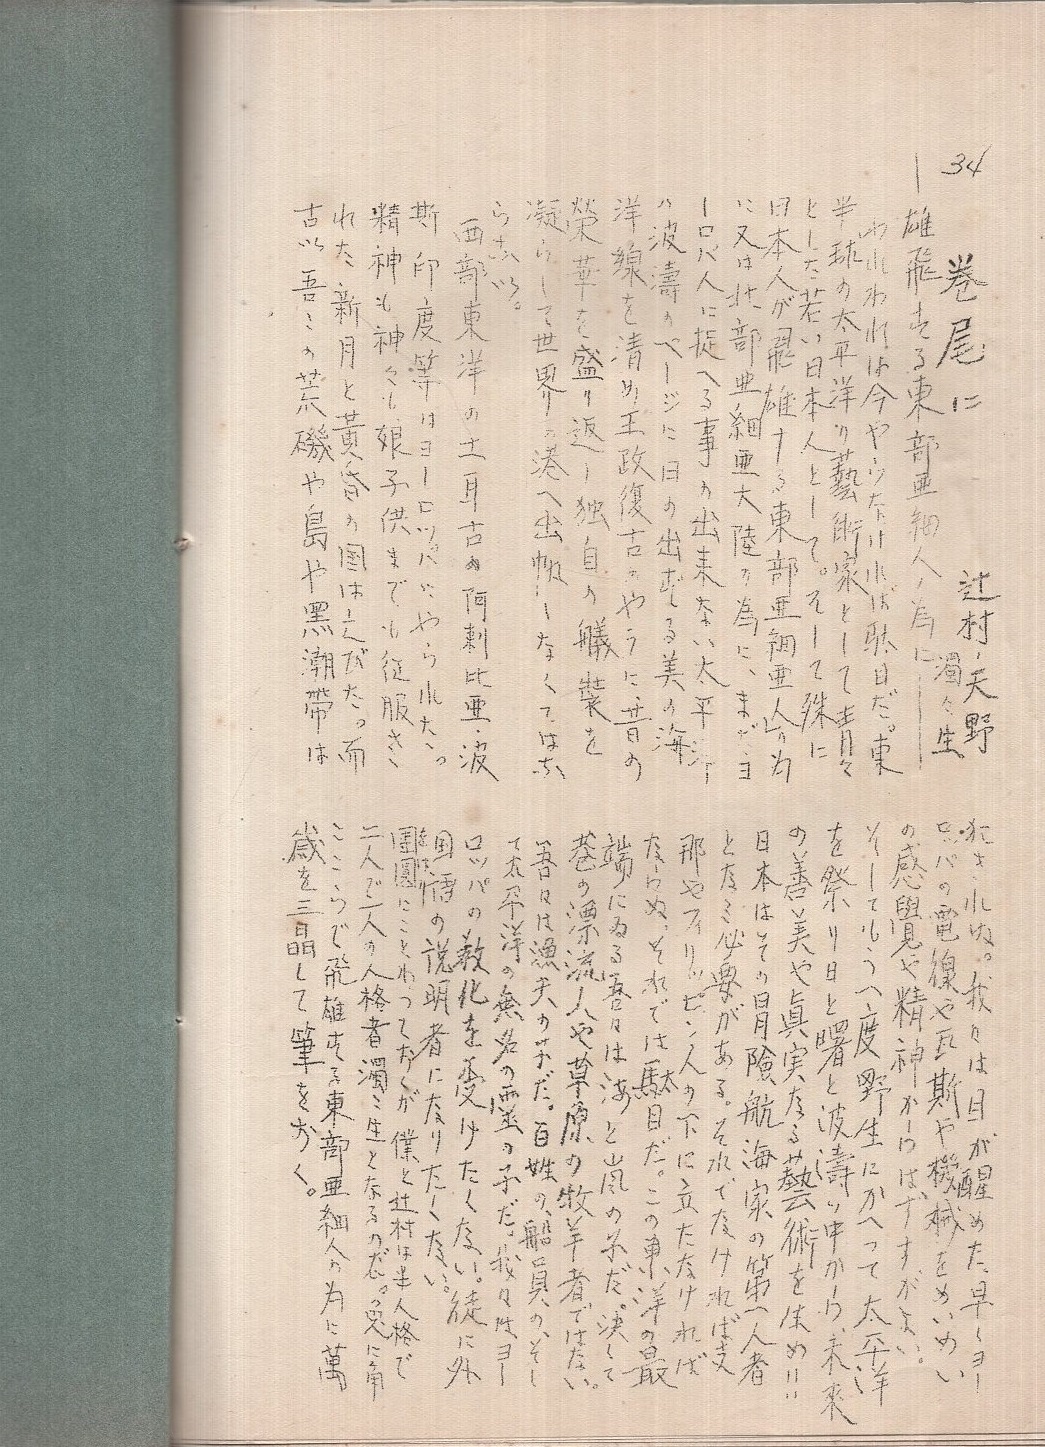 34
巻尾に
辻村・天野
濁々生
―雄飛する東部亜細亜人ノ為に―
われわれは今やらなければ駄目だ。東
半球の太平洋の藝術家として青々
とした若い日本人として。そして殊に
日本人が飛雄する東部亜細亜人の為
に又は北部亜細亜大陸の為に、まだヨ
ーロパ人に捉へる事の出来ない太平洋
の波濤のページに日の出ずる美の海
洋線を清め王政復古のやうに昔の
榮華を盛り返し独自の艤装を
凝らして世界の港へ出帆しなくてはな
らない。
西部東洋の土耳古や阿剌比亜・波
斯印度等はヨーロッパにやられた、。
精神も神々も娘子供までも征服さ
れた新月と黄昏の国は亡びた。而
吾々の荒磯や島や黒潮帯は
犯されぬ。我々は目が醒めた、早くヨー
ロッパの電線や瓦斯や機械をめいめい
の感覺や精神からはずすがよい。
そしてもう一度野生にかへつて太平洋
を祭り日と曙と波濤の中から、未來
の善美や真実なる藝術を
日本はその冒険航海家の第一人者
となる必要がある。それでなければ支
那やフィリッピン人の下に立たなければ
ならぬ、それでは駄目だ。この東洋の最
端にゐる吾々は海と嵐の子だ。決して
巷の漂流人や草原の牧羊者ではない。
吾々は漁夫の子だ。百姓の、船員の、そし
て太平洋の無名の靈の子だ。我々はヨー
ロッパの教化を受けたくない。徒に外
国情の説明者になりたくない。
にことわつておくが僕と辻村は半人格で
二人で一人の人格者濁々生となるのだ。兎に角
ここらで飛雄する東部亜細亜人の為に萬
歳を三唱して筆をおく。